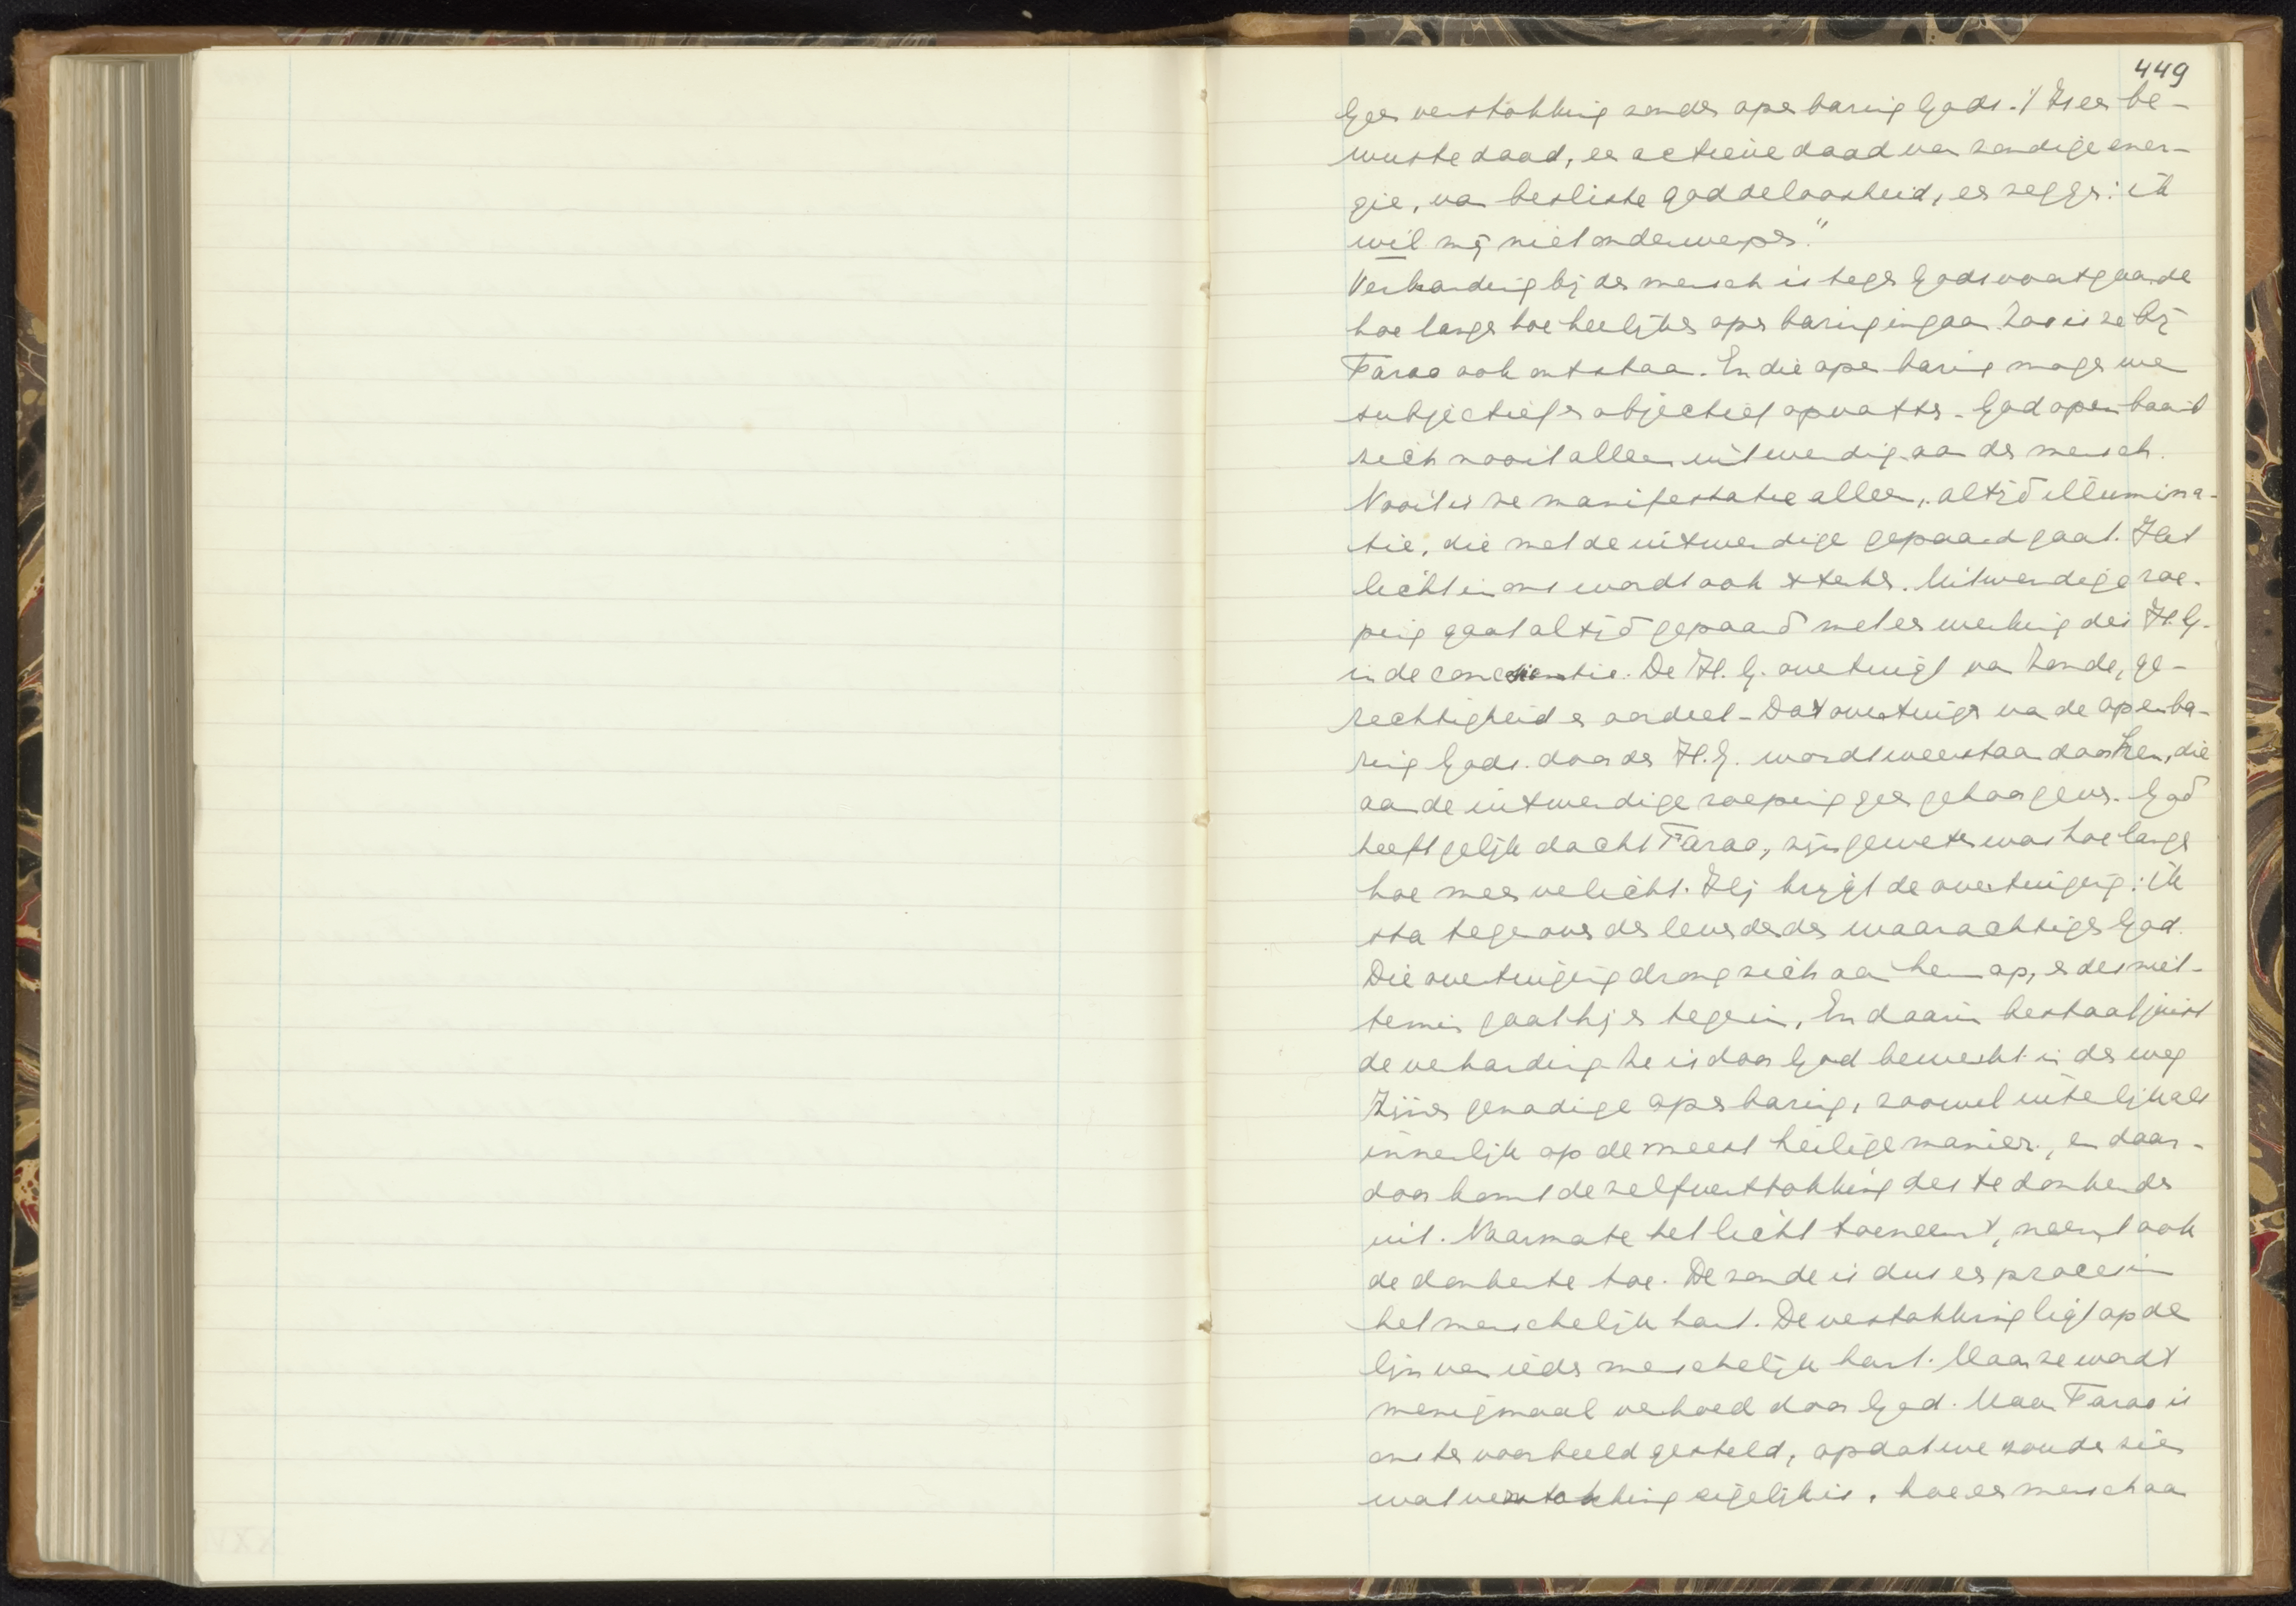 449
Geen verstokking zonder openbaring Gods. 't Is een be-
wuste daad, en actieve daad van zondige ener-
gie, van besliste goddeloosheid, en zeggen: ik
wil mij niet onderwerpen."
Verharding bij den mensch is tegen Gods voortgaande
hoe langer hoe heerlijker openbaring ingaan. Zoo is ze bij
Farao ook ontstaan. En die openbaring mogen we
subjectief en objectief opvatten. God openbaart
zich nooit alleen uitwendig aan den mensch.
Nooit is ze manifestatie alleen, altijd illumina-
tie, die met de uitwendige gepaard gaat. Het
licht in ons wordt ook sterker. Uitwendige roe-
ping gaat altijd gepaard met een werking des H.G.
in de conscientie. De H.G. overtuigt van zonde, ge-
rechtigheid en oordeel. Dat overtuigen van de openba-
ring Gods door den H.G. wordt weerstaan door hen, die
aan de uitwendige roeping geen gehoor geven. God
heeft gelijk dacht Farao, zijn geweten was hoe langer
hoe meer verlicht. Hij krijgt de overtuiging: ik
sta tegenover den levenden waarachtigen God.
Die overtuiging drong zich aan hem op, en desniet-
temin gaat hij er tegen in. En daarin bestaat juist
de verharding. Ze is door God bewerkt in den weg
Zijner genadige openbaring, zoowel uiterlijk als
innerlijk op de meest heilige manier, en daar-
door komt de zelfverstokking des te donkerder
uit. Naarmate het licht toeneemt, neemt ook
de donkerte toe. De zonde is dus een proces in
het menschelijk hart. De verstokking ligt op de
lijn van ieder menschelijk hart. Maar ze wordt
menigmaal verhoed door God. Maar Farao is
ons ten voorbeeld gesteld, opdat we zouden zien
wat verstokking eigenlijk is, hoe een mensch aan